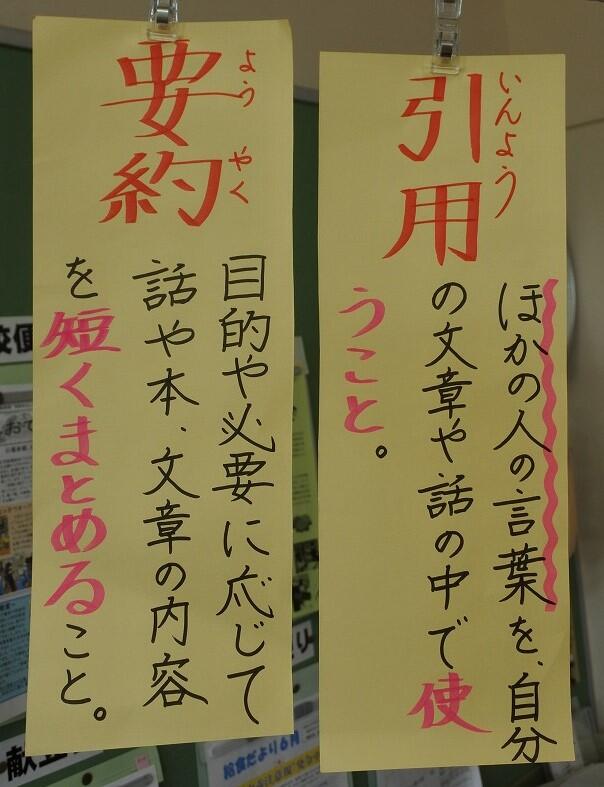 引用
いんよう
ほかの人の言葉を、自分
の文章や話の中で使
うこと。
要約
ようやく
目的や必要に応じて
話や本、文章の内容
を短くまとめること。
給食だより6月